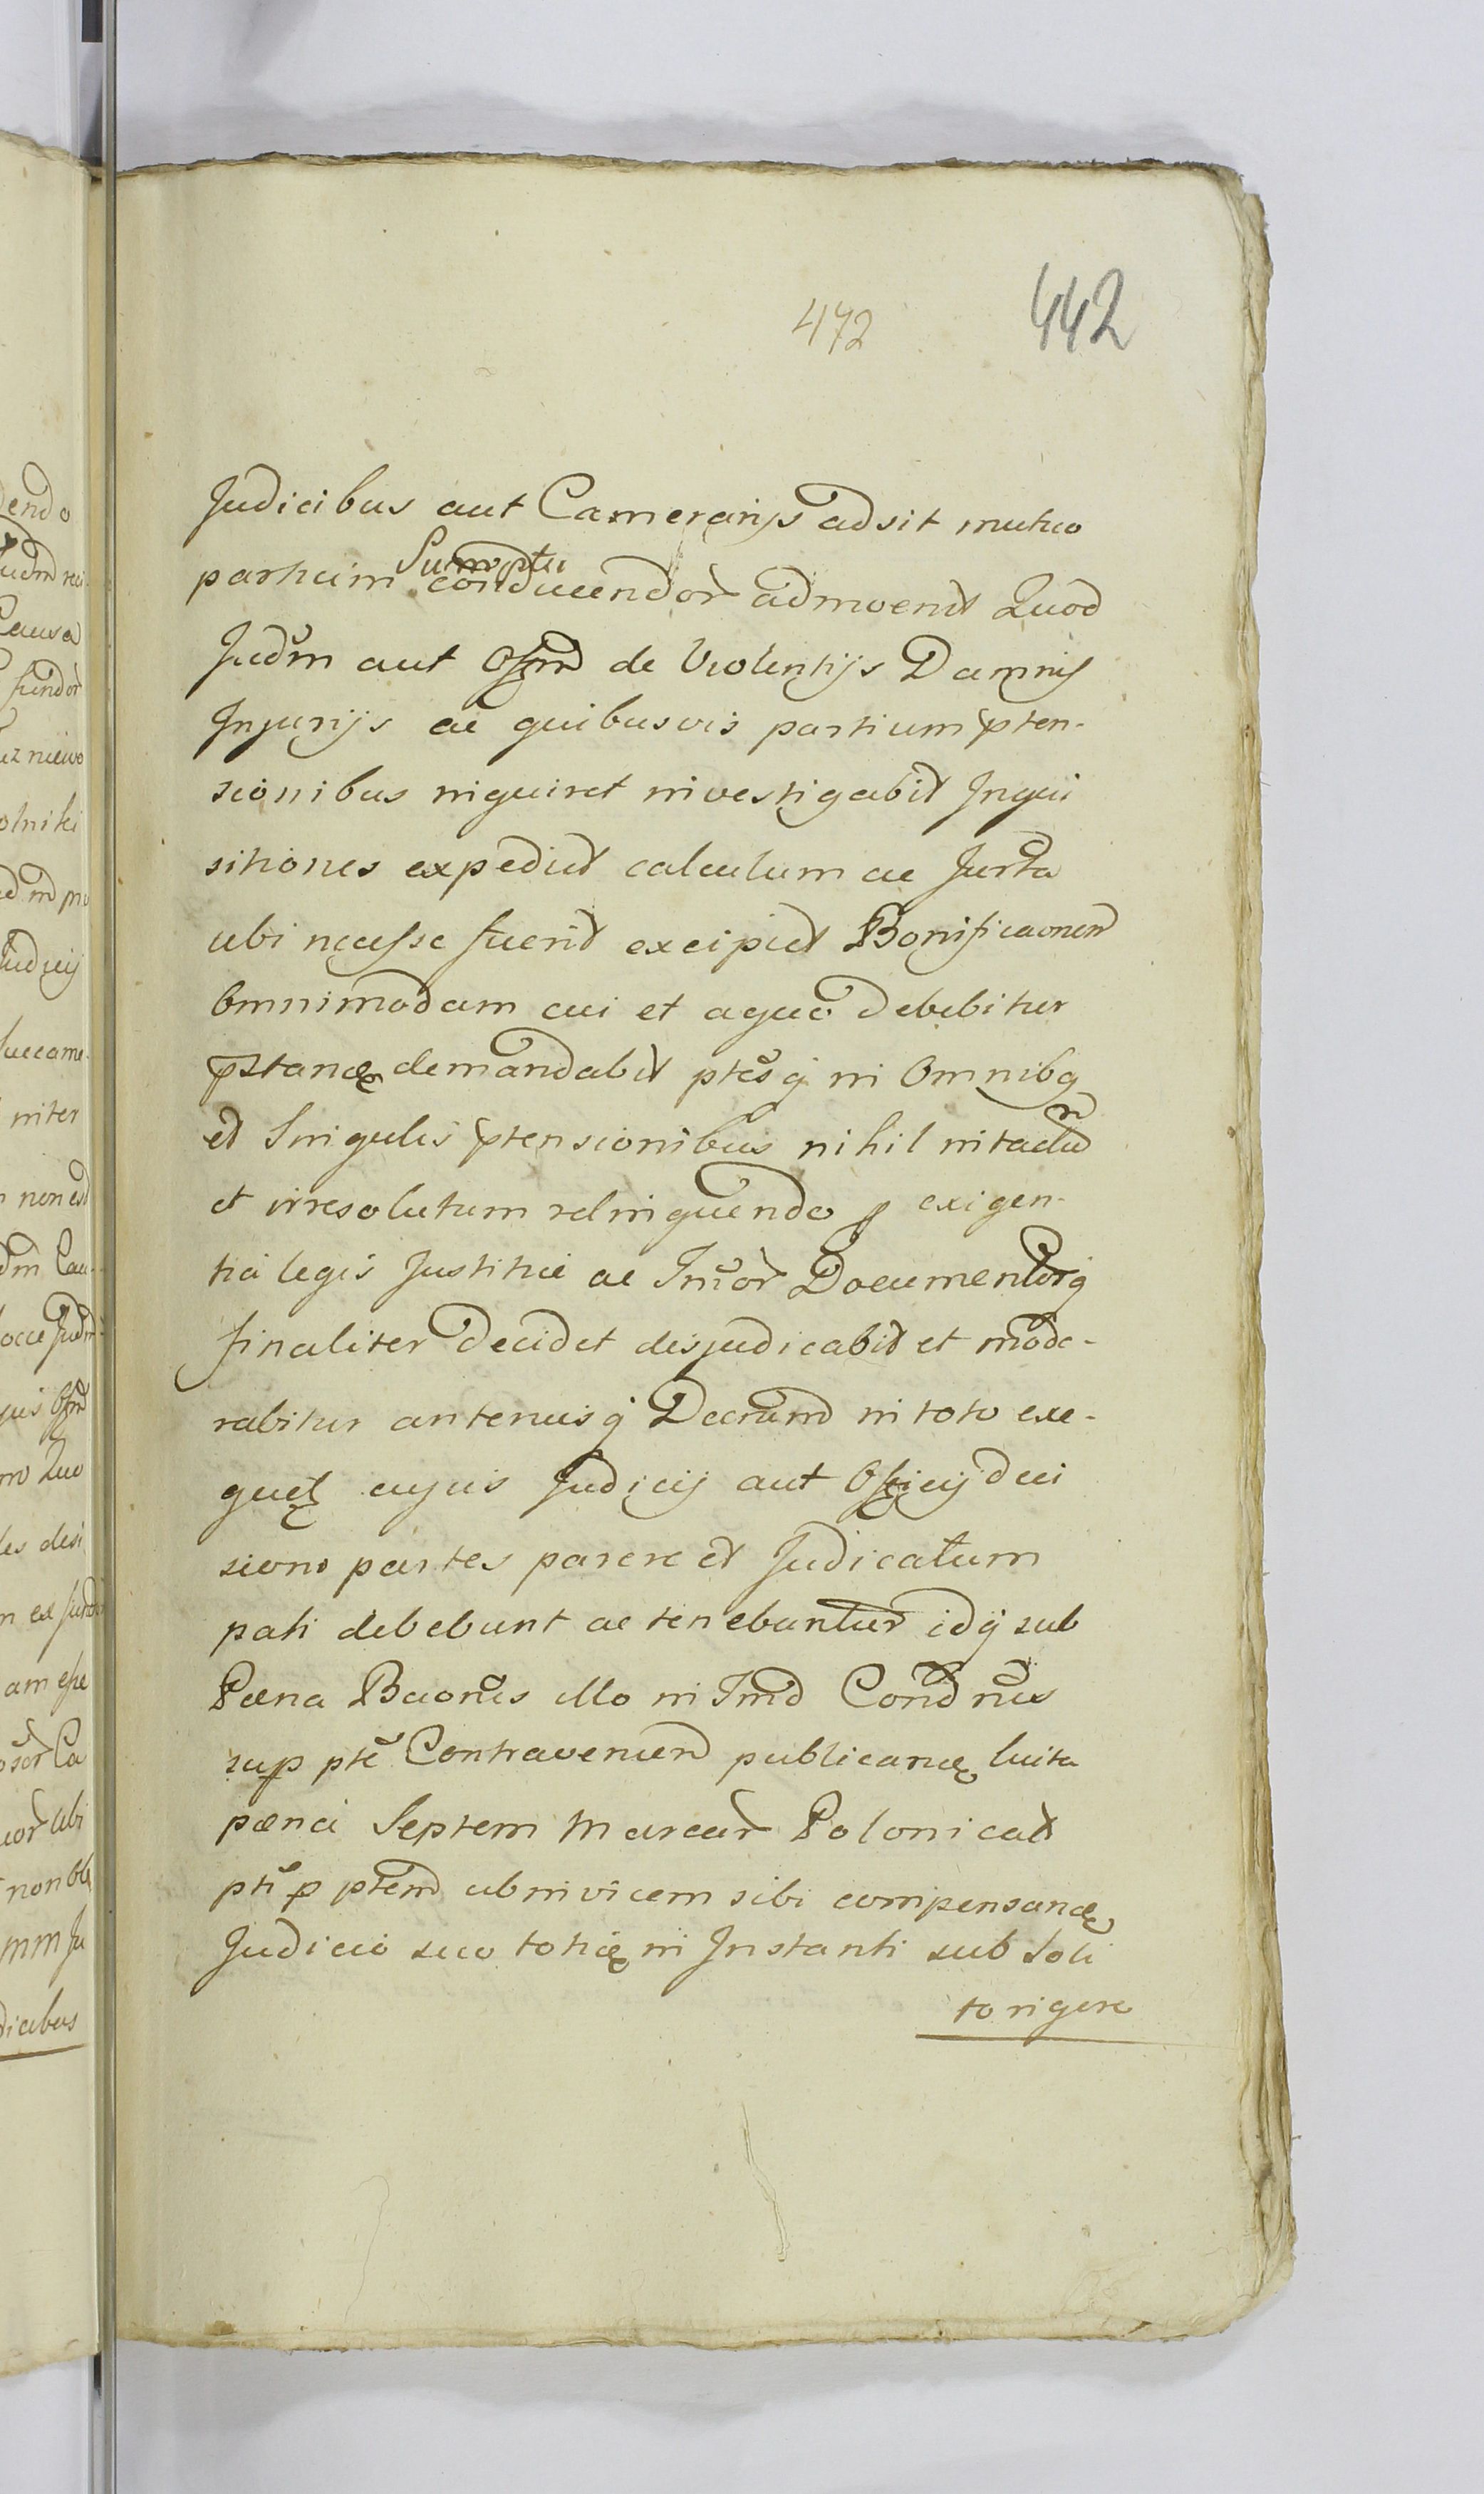 472 442
Judicibus aut Camerarijs adsit mutuo
partium Sumptu conducendor admoend Quod
Judm aut Offm de Violentijs Damnis
Injurijs ac quibusvis partium pten-
sionibus inquiret investigabit Inqui
sitiones expediet calculum ac Jurta
ubi necesse fuerit excipiet Bonificaonem
Omnimodam cui et aquo debebitur
pstanda demandabit ptesq in Omnibq
et Singulis ptensionibus nihil intactum
et irresolutum relinquendo p exigen-
tia legis Justitiae ac Jurior Documentorq
finaliter decidet disjudicabit et mode-
rabitur antenusq Decrum in toto exe-
quet cujus Judicij aut Officij deci
siono partes parere et Judicatum
pati debebunt ac tenebuntur idq sub
Paena Baonis illo in Tmd Condnis
sup pte Contraveniend publicanda luita
paena Septem Marcar Polonicat
pti p ptem abinvicem sibi compensanda
Judicio suo toties in Instanti sub Soli
to rigore
dendo
Causa
fundor
olniki
Judicij
inter
non est
les deci
dicibus